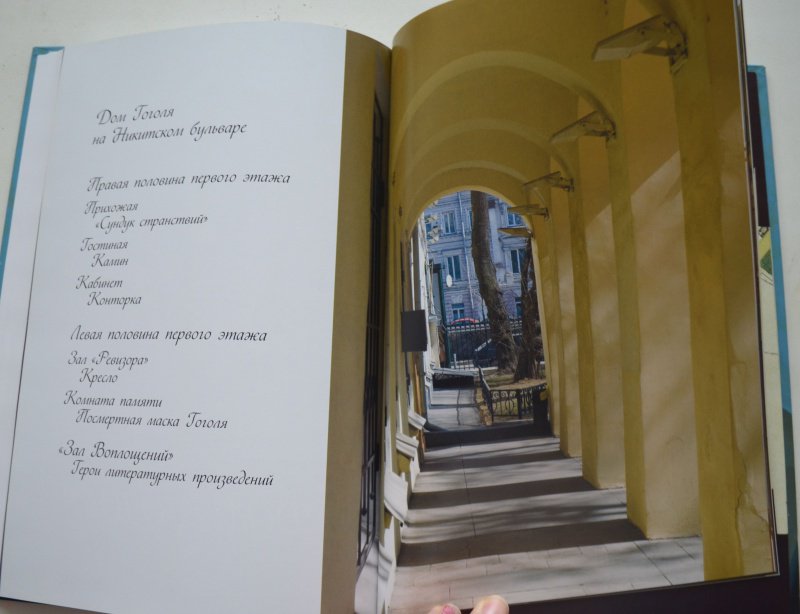 Дом Гоголя
на Никитском бульваре
Правая половина первого этажа
Прихожая
«Сундук странствий»
Гостиная
Камин
Кабинет
Конторка
Левая половина первого этажа
Зал «Ревизора»
Кресло
Комната памяти
Посмертная маска Гоголя
«Зал Воплощений»
Герои литературных произведений